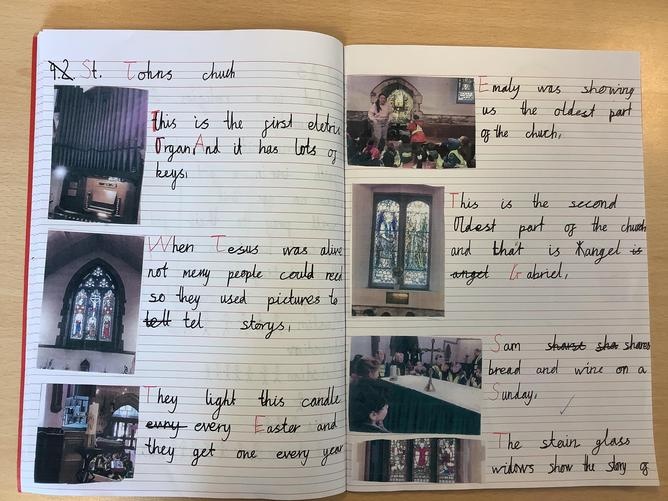 9.2. St. Johns chuch
This is the first eletric
Organ, And it has lots of
keys.
When Jesus was alive
not meny people could reed
so they used pictures to
tell tel storys.
They light this candle
evry every Easter and
they get one every year
Emaly was showing
us the oldest part
of the church.
This is the second
Oldest part of the church
and that is Xangel is
angel Gabriel.
Sam sharst sha shares
bread and wine on a
Sunday.
The stein glass
widows show the story of